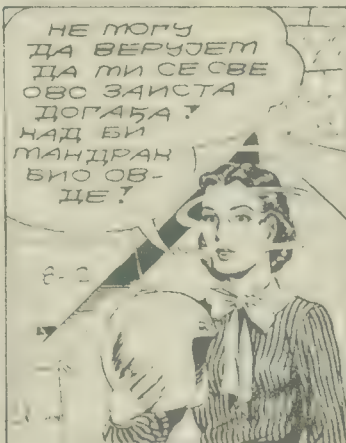 НЕ МОГУ
ДА ВЕРУЈЕМ
ДА МИ СЕ СВЕ
ОВО ЗАИСТА
ДОГАЂА!
КАД БИ
МАНДРАК
БИО ОВ-
ДЕ!